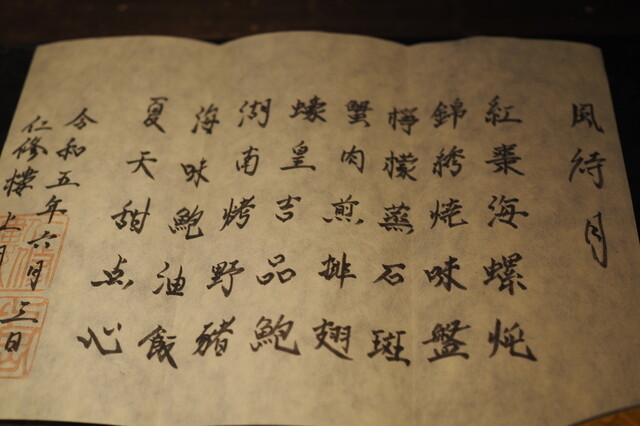 風待月
紅棗海螺炖
錦綉焼味盤
檸檬蒸石斑
蟹肉煎排翅
蠔皇吉品鮑
湖南烤野豬
海味鮑油飯
夏天甜点心
令和五年六月三日
仁修樓上